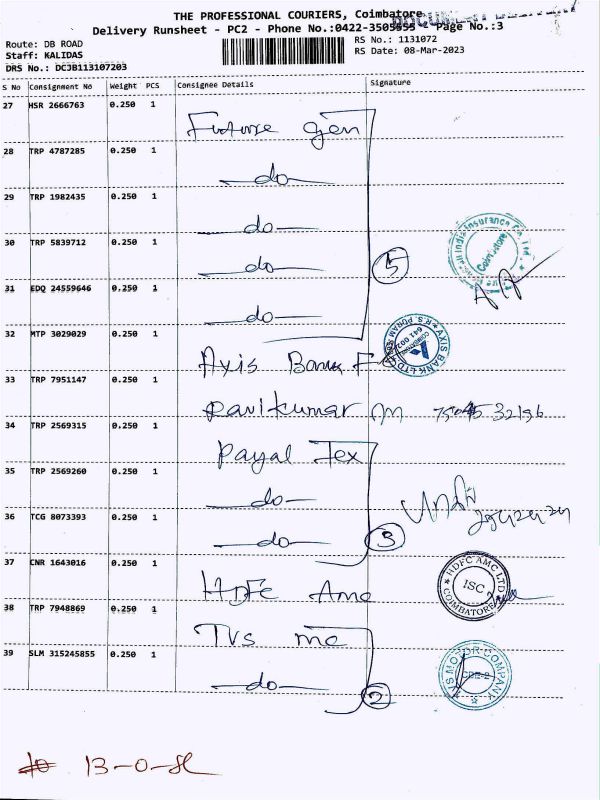 THE PROFESSIONAL COURIERS, Coimbatore
Delivery Runsheet - PC2 - Phone No.:0422-3505555 - Page No.:3
Route: DB ROAD RS No.: 1131072
Staff: KALIDAS RS Date: 08-Mar-2023
DRS No.: DCJB113107203
S No Consignment No Weight PCS Consignee Details Signature
27 HSR 2666763 0.250 1
Future Gen
28 TRP 4787285 0.250 1
do
29 TRP 1982435 0.250 1
do
30 TRP 5839712 0.250 1
do 5
31 EDQ 24559646 0.250 1
do
32 MTP 3029029 0.250 1
Axis Bank F
AXIS BANK LTD R.S. PURAM COIMBATORE 641 002
33 TRP 7951147 0.250 1
Ravikumar M
34 TRP 2569315 0.250 1
Payal Tex
35 TRP 2569260 0.250 1
do
36 TCG 8073393 0.250 1
do 3
37 CNR 1643016 0.250 1
HDFC Amc
HDFC AMC LTD ISC COIMBATORE
38 TRP 7948869 0.250 1
TVS mc
39 SLM 315245855 0.250 1
do 2
TVS MOTOR COMPANY
13-0-